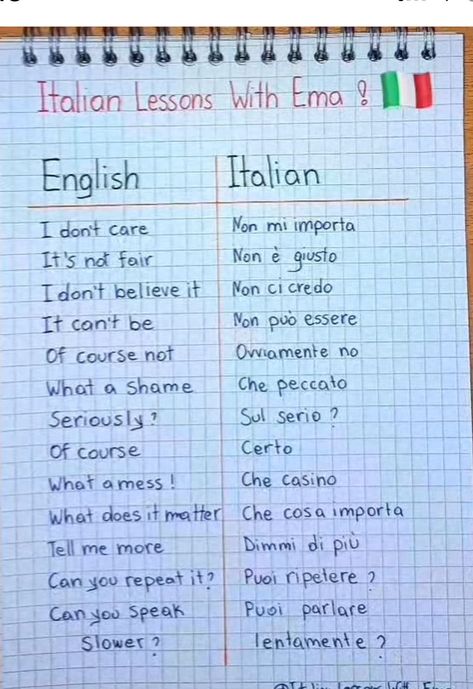 Italian Lessons With Ema !
English Italian
I don't care Non mi importa
It's not fair Non è giusto
I don't believe it Non ci credo
It can't be Non può essere
Of course not Ovviamente no
What a shame Che peccato
Seriously? Sul serio?
Of course Certo
What a mess! Che casino
What does it matter Che cosa importa
Tell me more Dimmi di più
Can you repeat it? Puoi ripetere?
Can you speak Puoi parlare
Slower? lentamente?